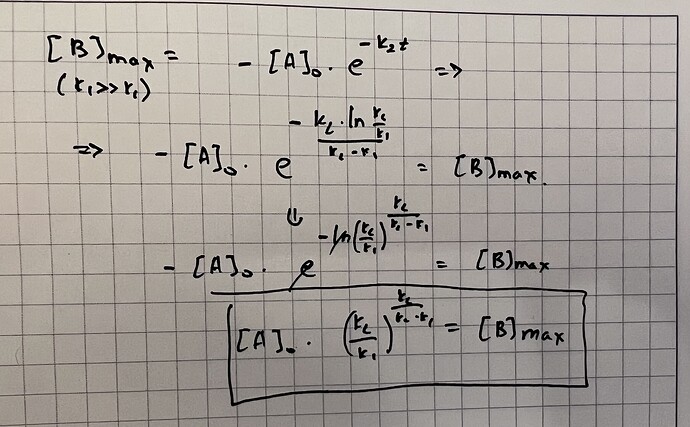 [B]max = - [A]₀ · e^(-k₂t) =>
(k₁>>k₁)
=> - [A]₀ · e^(-(k₂ · ln(k₂/k₁))/(k₂-k₁)) = [B]max.
⇓
- [A]₀ · e^(-ln(k₂/k₁)^(k₂/(k₂-k₁))) = [B]max
[A]₀ · (k₂/k₁)^(k₂/(k₂-k₁)) = [B]max